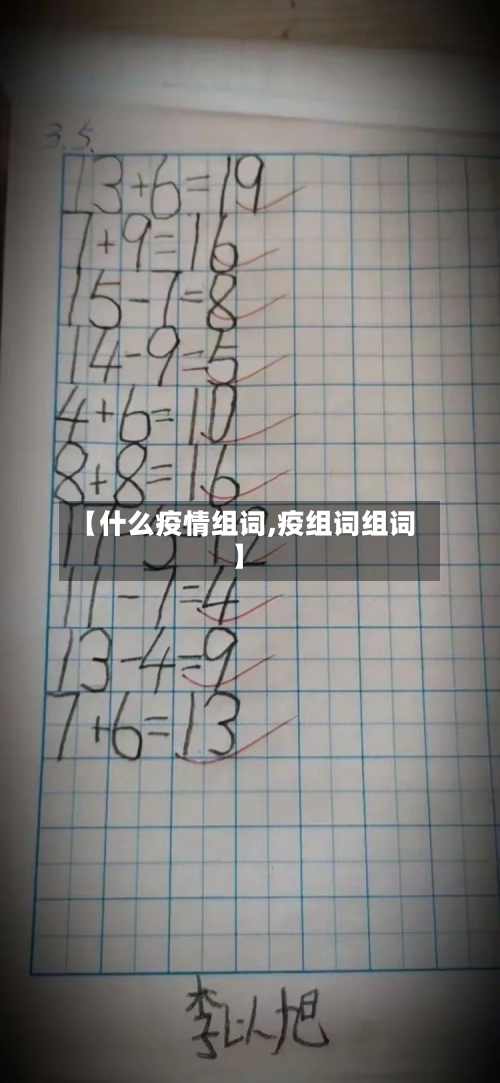 3.5.
13+6=19
7+9=16
15-7=8
14-9=5
4+6=10
8+8=16
【什么疫情组词,疫组词组词
】
11-7=4
13-4=9
7+6=13
李以旭